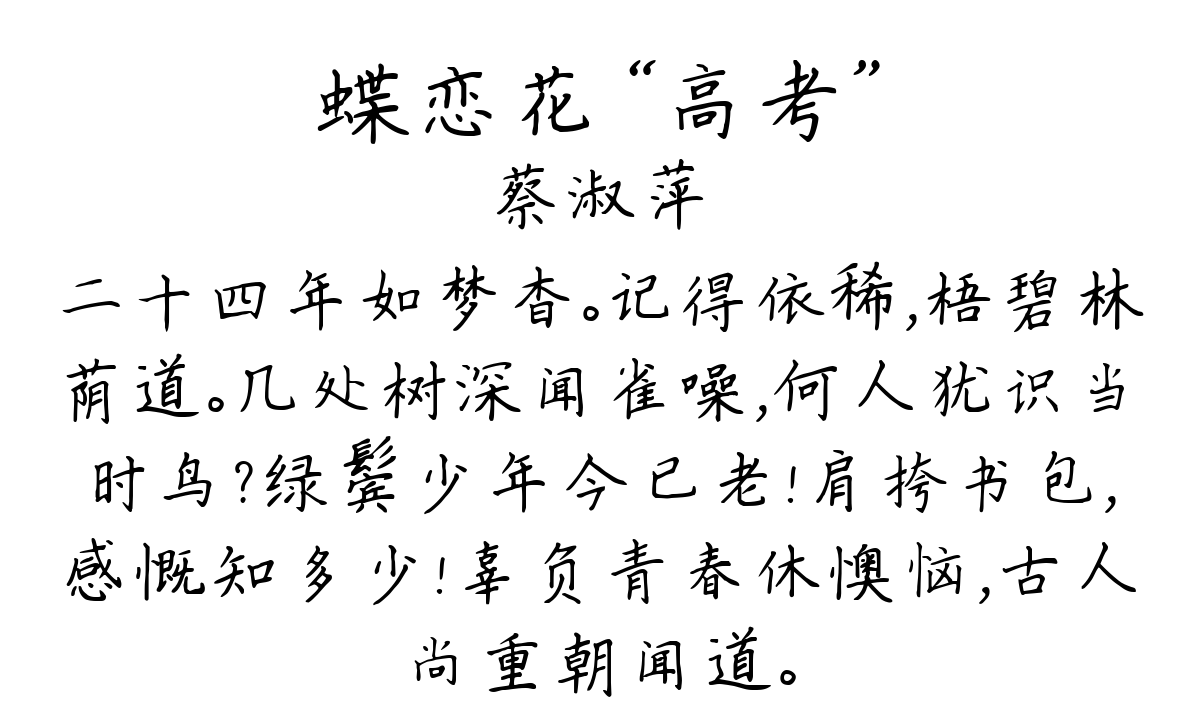 蝶恋花“高考”
蔡淑萍
二十四年如梦杳。记得依稀,梧碧林
荫道。几处树深闻雀噪,何人犹识当
时鸟?绿鬓少年今已老!肩挎书包,
感慨知多少!辜负青春休懊恼,古人
尚重朝闻道。